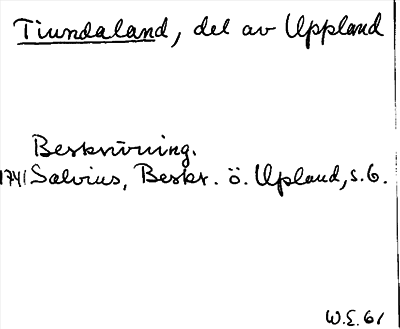 Tiundaland, del av Uppland
Beskrivning.
1741 Salvius, Beskr. ö. Upland, s. 6.
W.E. 61